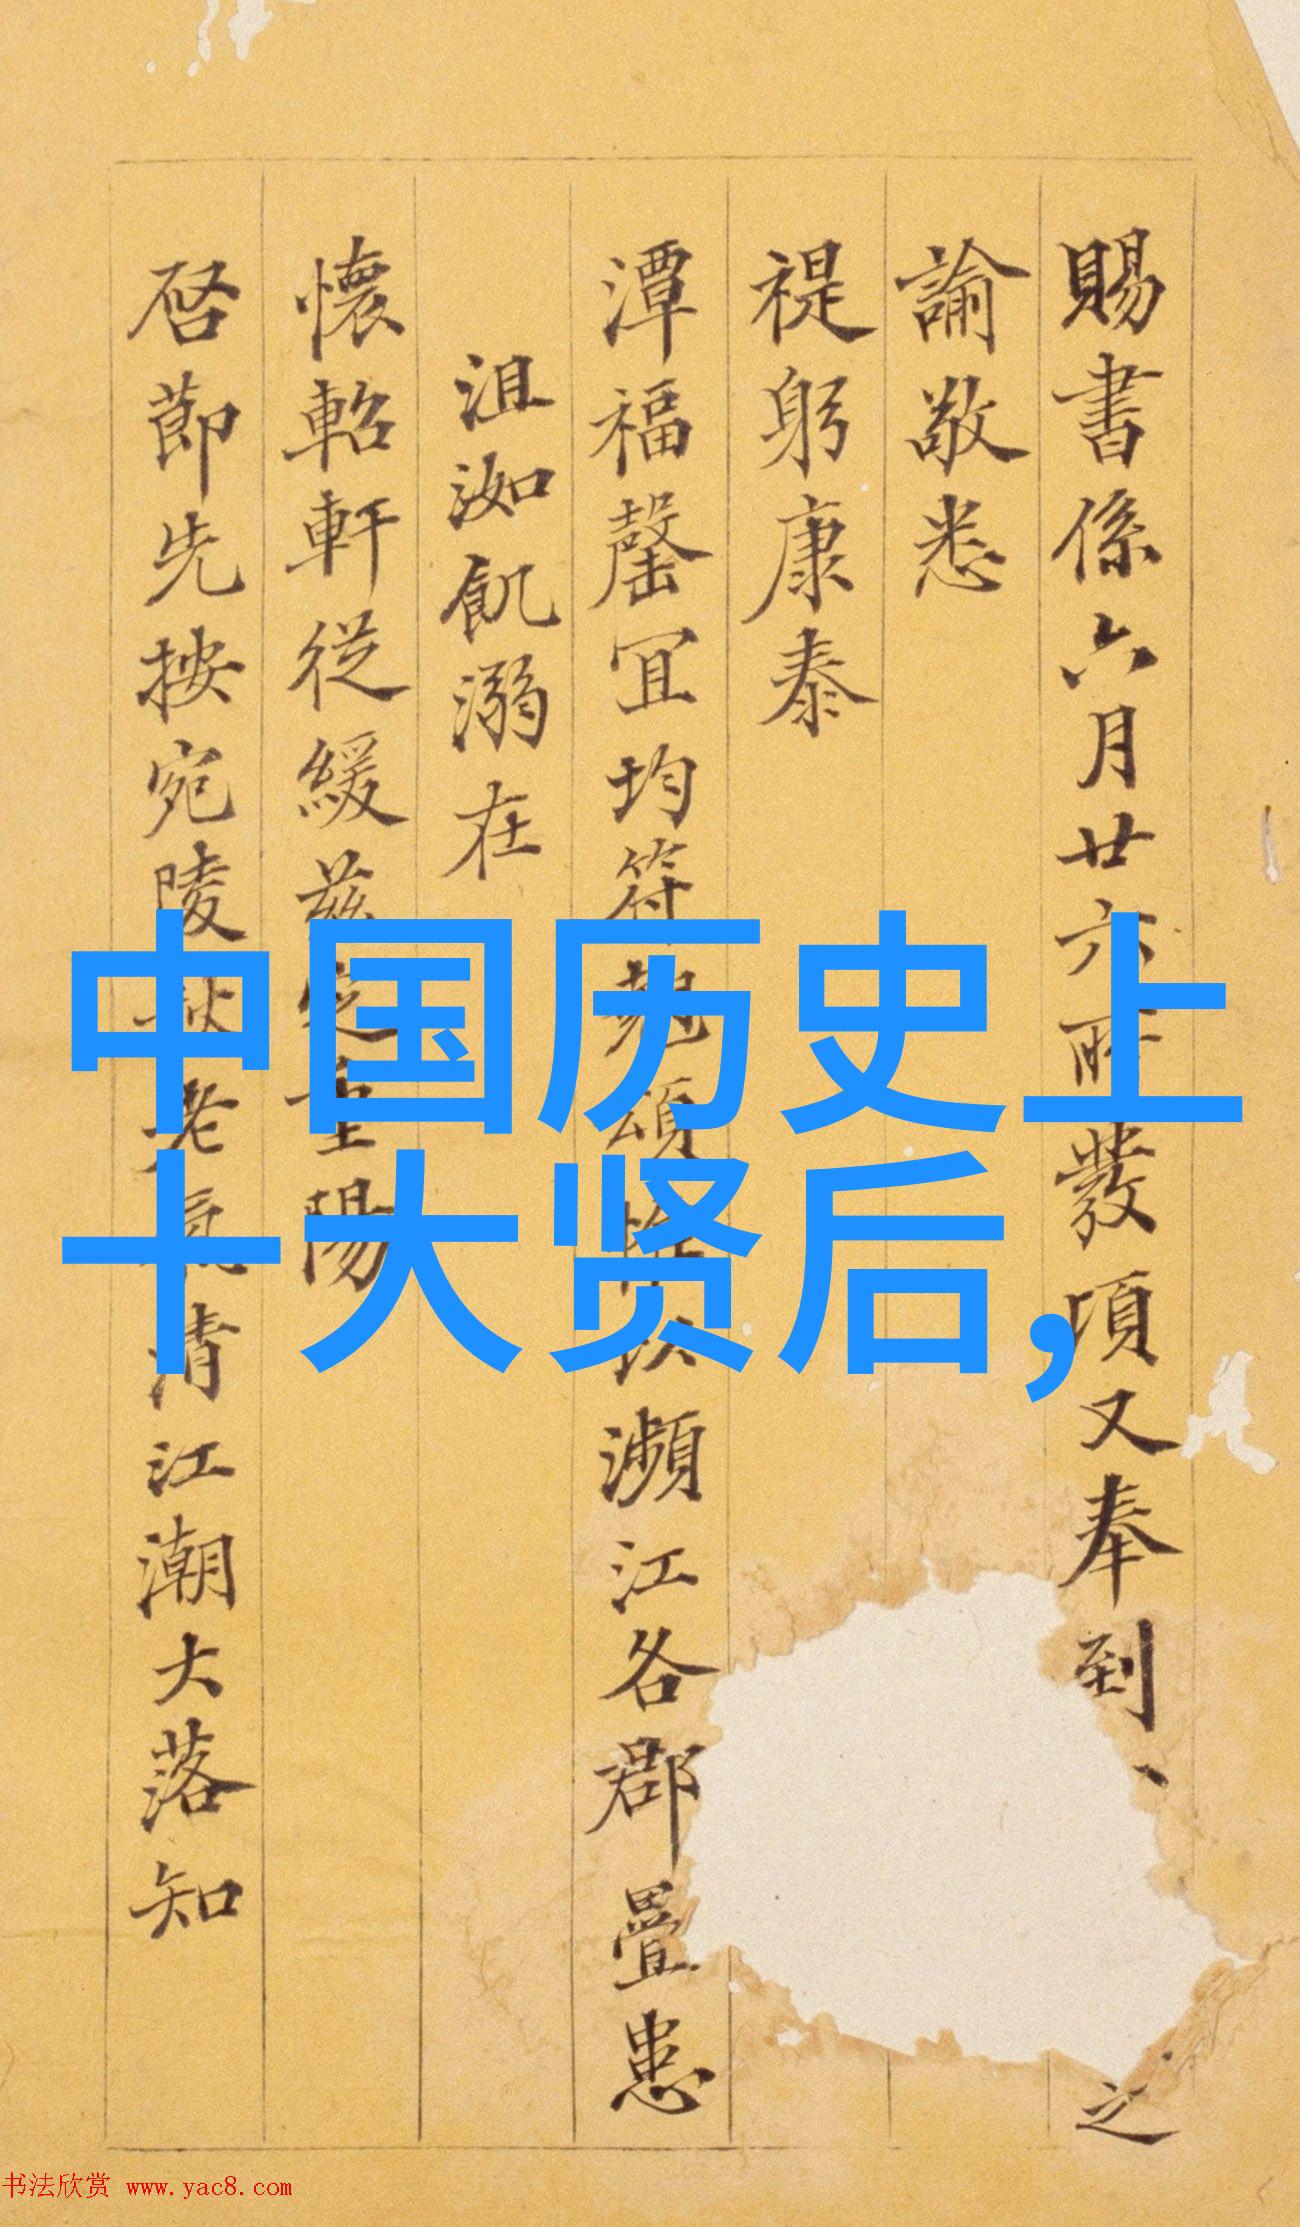 中国历史上
十大贤后，
賜書係六月廿六所發項又奉到、
之
諭敬悉
禔躬康泰
潭福罄宜均符頌以瀕江各郡疊患
沮洳飢溺在
懷軺軒從緩茲定重陽
啓節先按宛陵秋老氣清江潮大落知
书法欣赏 www.yac8.com